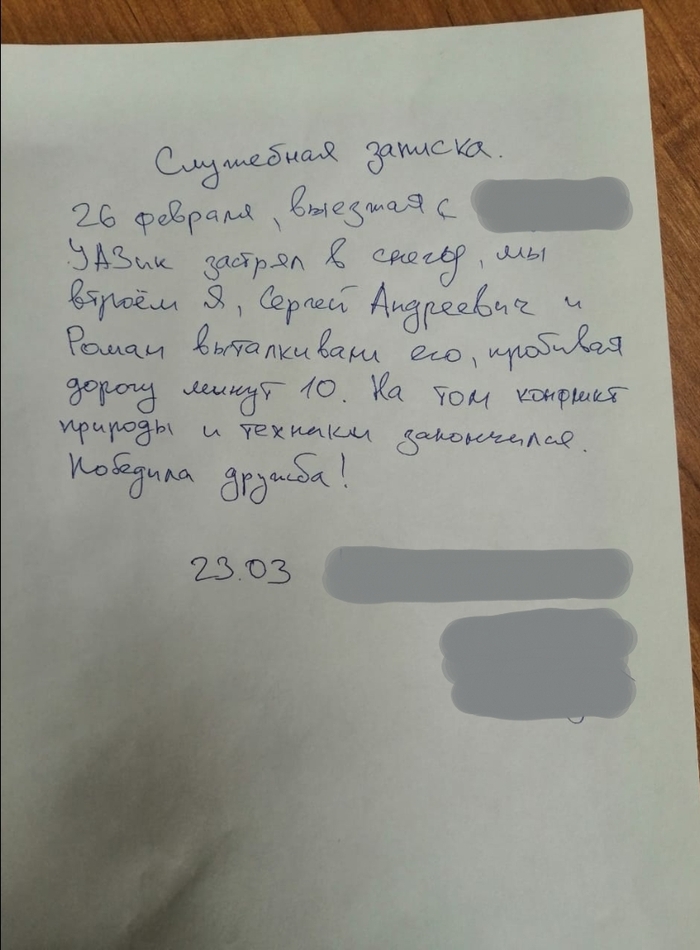 Служебная записка.
26 февраля, выезжая с
УАЗик застрял в снегу, мы
втроём Я, Сергей Андреевич и
Роман выталкивали его, пробивая
дорогу минут 10. На том конфликт
природы и техники закончился.
Победила дружба!
23.03